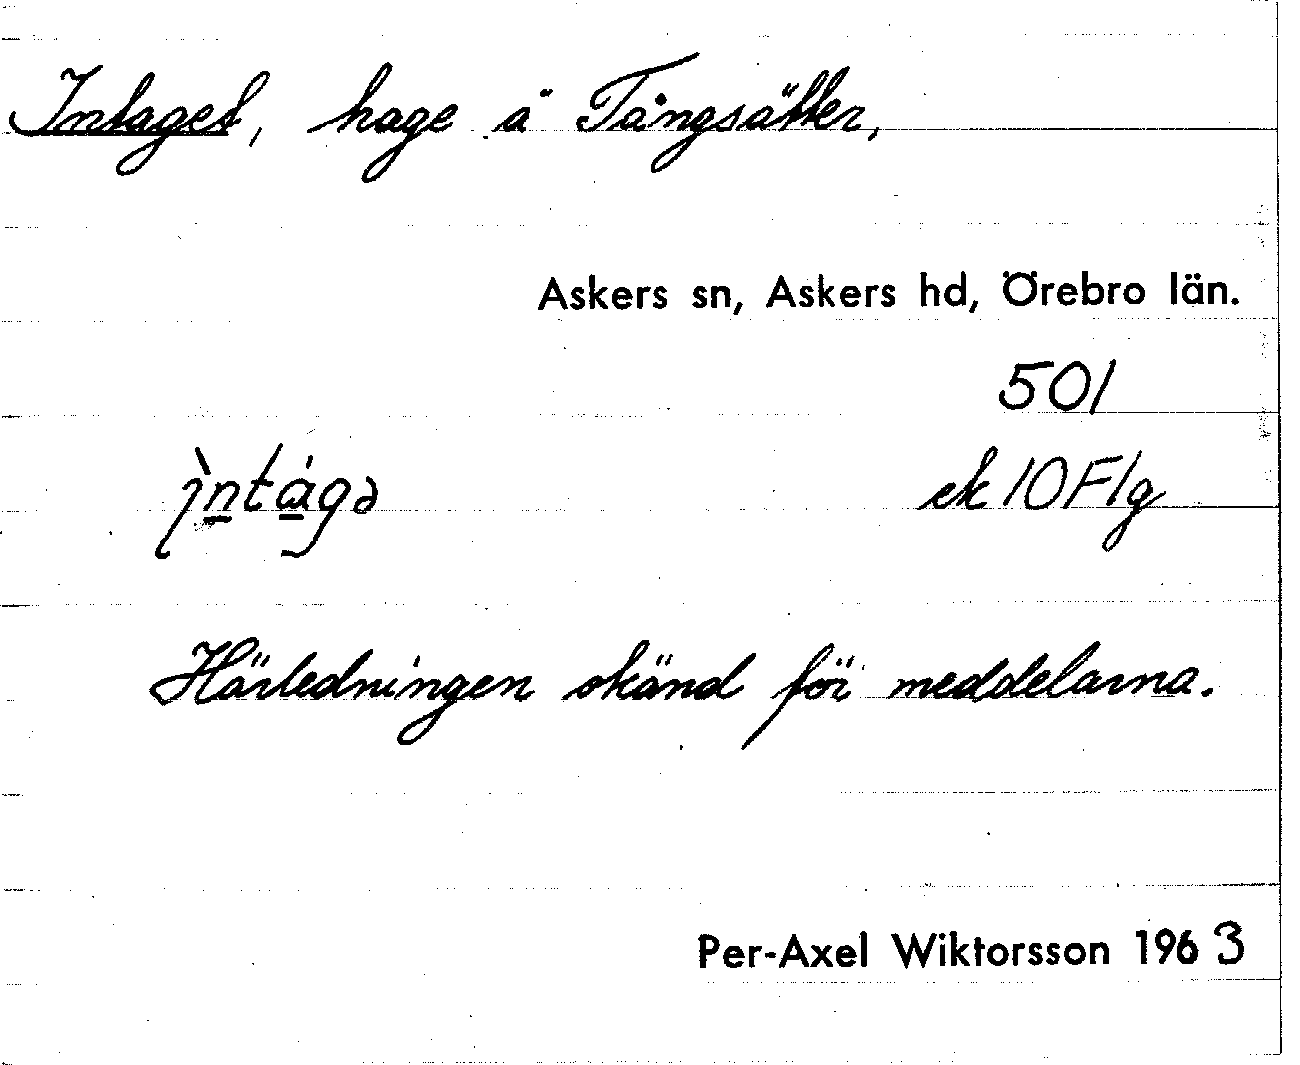 Intaget, hage å Tångsätter,
Askers sn, Askers hd, Örebro län.
501
ek 10F1g
Härledningen okänd för meddelarna.
Per-Axel Wiktorsson 1963